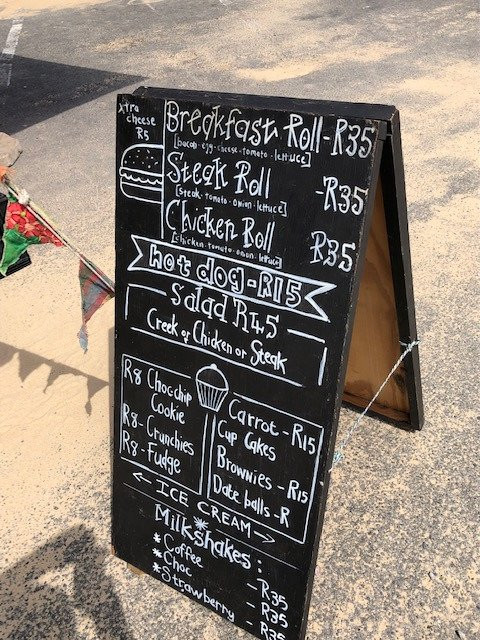 xtra
cheese
R5
Breakfast Roll - R35
[bacon · egg · cheese · tomato · lettuce]
Steak Roll - R35
[steak · tomato · onion · lettuce]
Chicken Roll R35
[chicken · tomato · onion · lettuce]
hot dog - R15
Salad R45
Creek or Chicken or Steak
R8 Choc chip
Cookie
R8 - Crunchies
R8 - Fudge
Carrot - R15
Cup Cakes
Brownies - R15
Date balls - R
← ICE CREAM →
Milkshakes:
* Coffee - R35
* Choc - R35
* Strawberry - R35